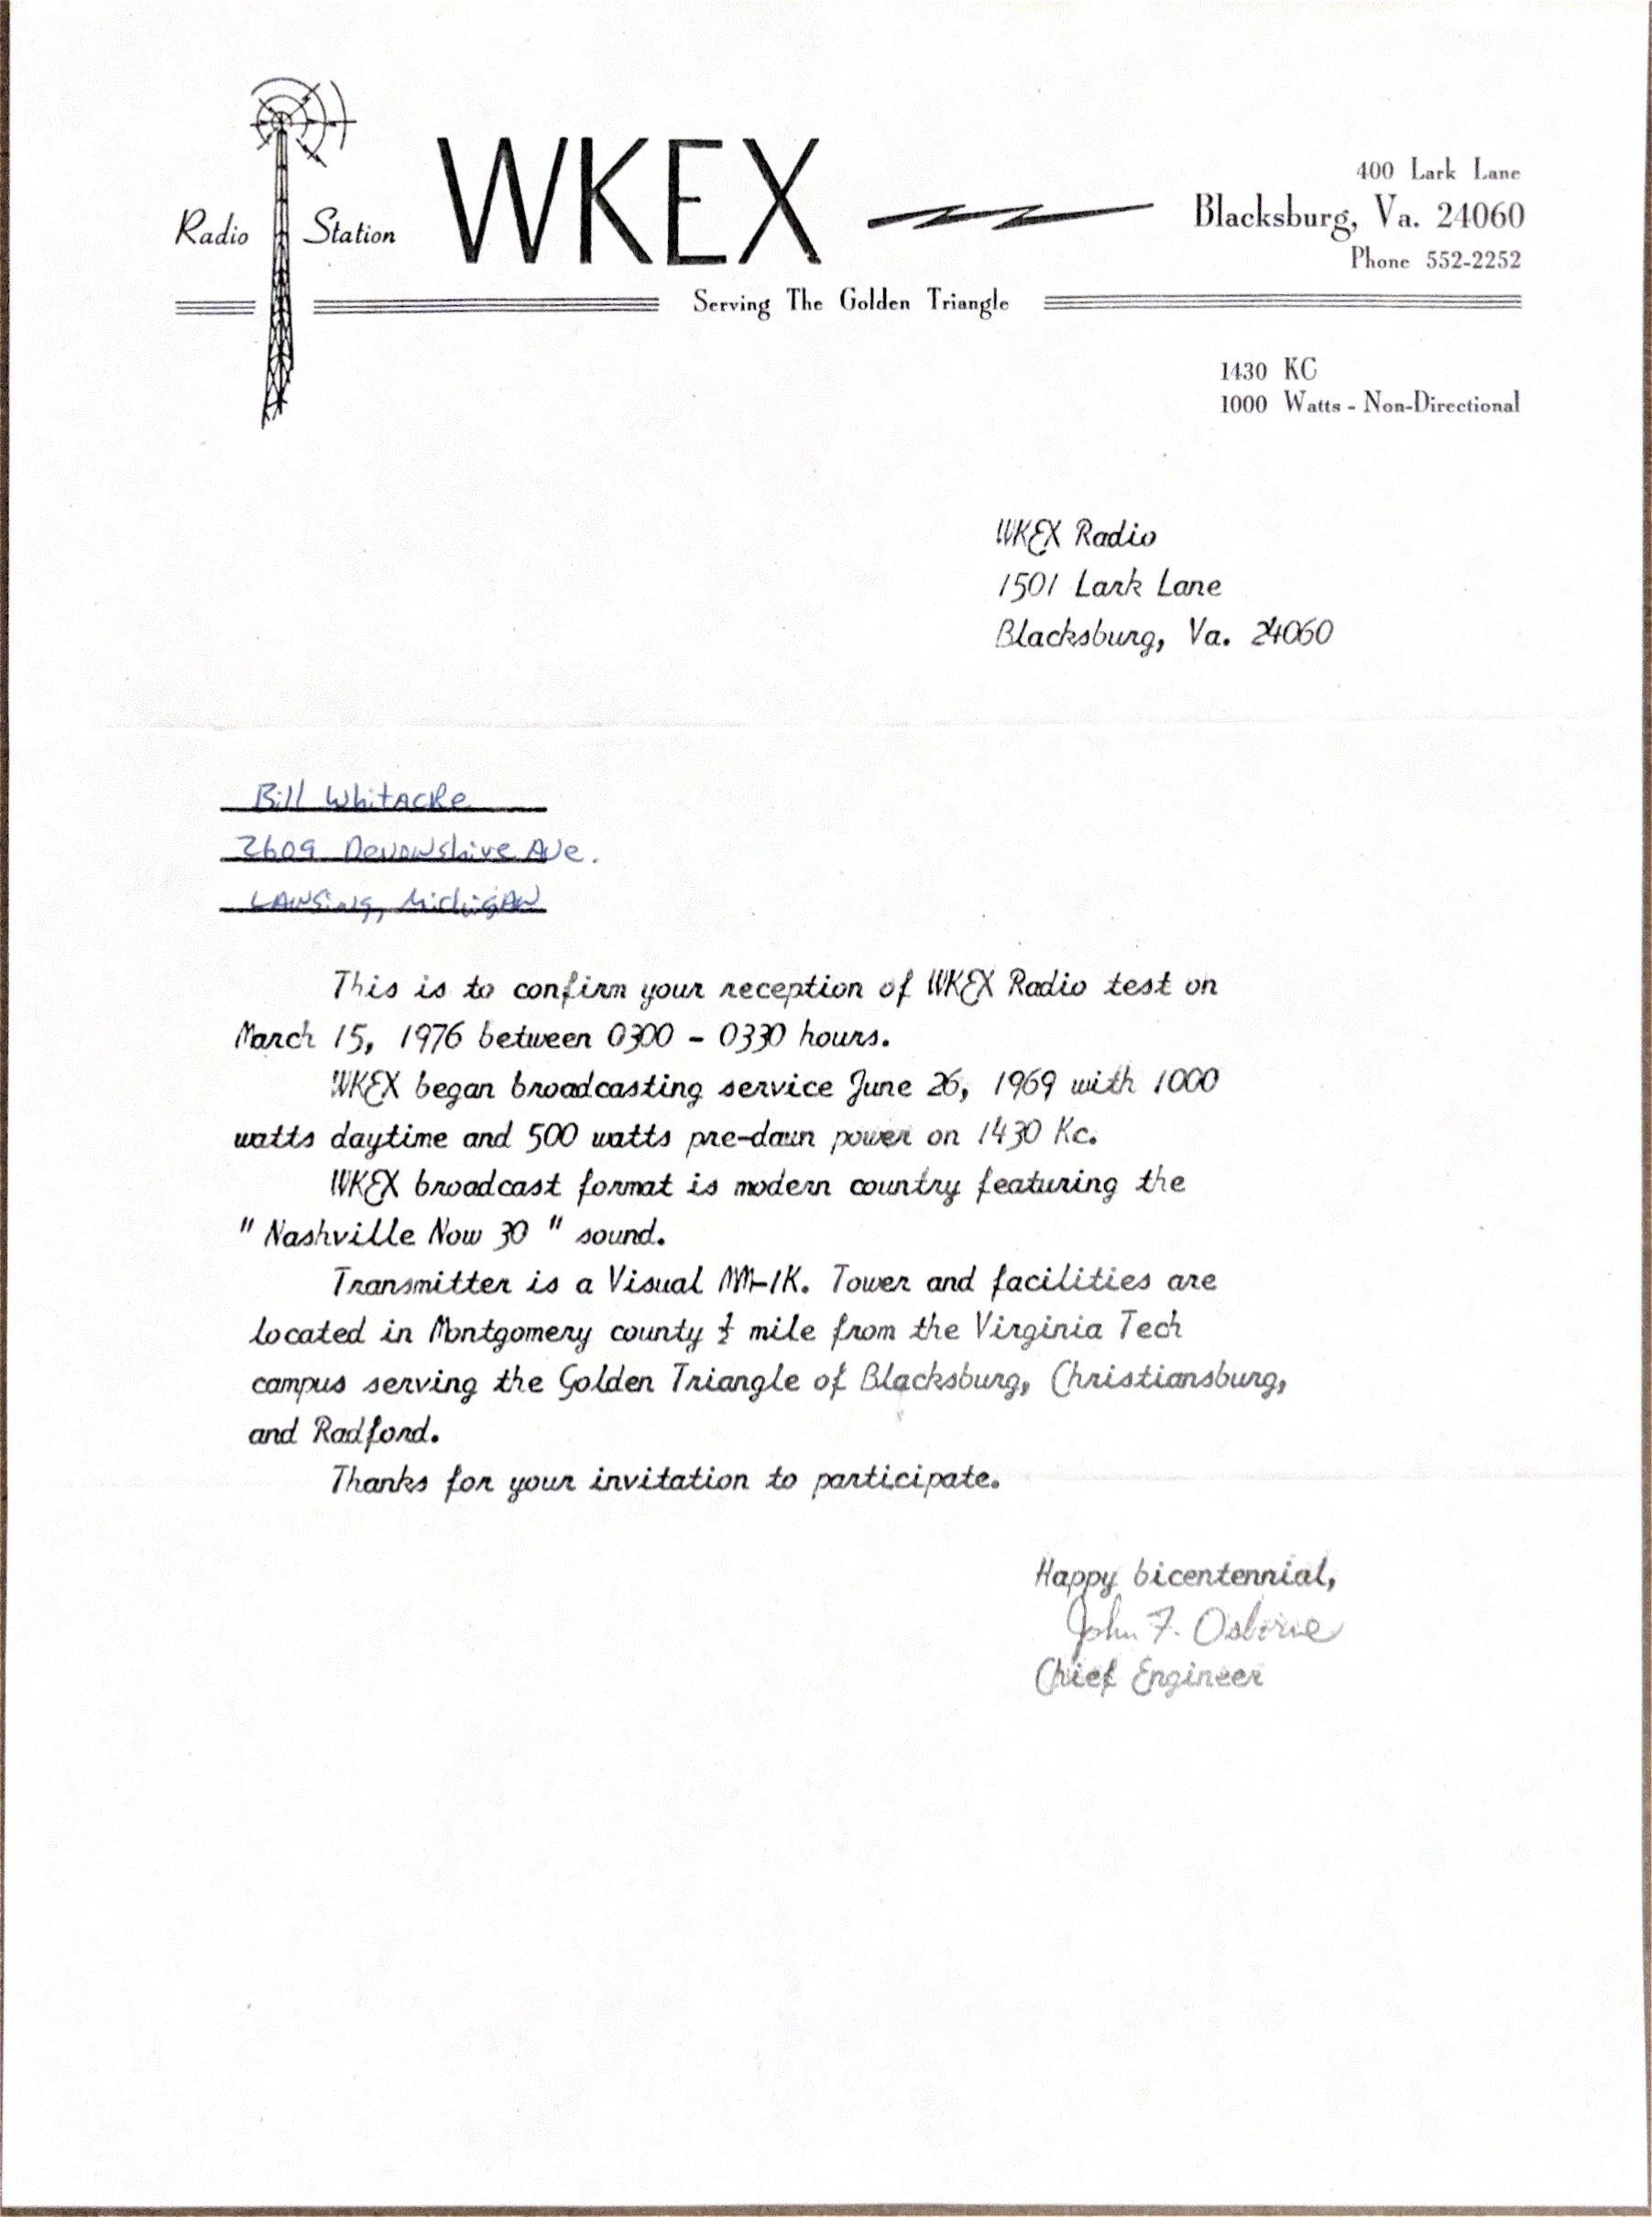 Radio Station WKEX
400 Lark Lane
Blacksburg, Va. 24060
Phone 552-2252
Serving The Golden Triangle
1430 KC
1000 Watts - Non-Directional
WKEX Radio
1501 Lark Lane
Blacksburg, Va. 24060
Bill Whitacre
2609 Devonshire Ave.
Lansing, Michigan
This is to confirm your reception of WKEX Radio test on
March 15, 1976 between 0300 - 0330 hours.
WKEX began broadcasting service June 26, 1969 with 1000
watts daytime and 500 watts pre-dawn power on 1430 Kc.
WKEX broadcast format is modern country featuring the
" Nashville Now 30 " sound.
Transmitter is a Visual AM-1K. Tower and facilities are
located in Montgomery county ½ mile from the Virginia Tech
campus serving the Golden Triangle of Blacksburg, Christiansburg,
and Radford.
Thanks for your invitation to participate.
Happy bicentennial,
John F. Osborne
Chief Engineer